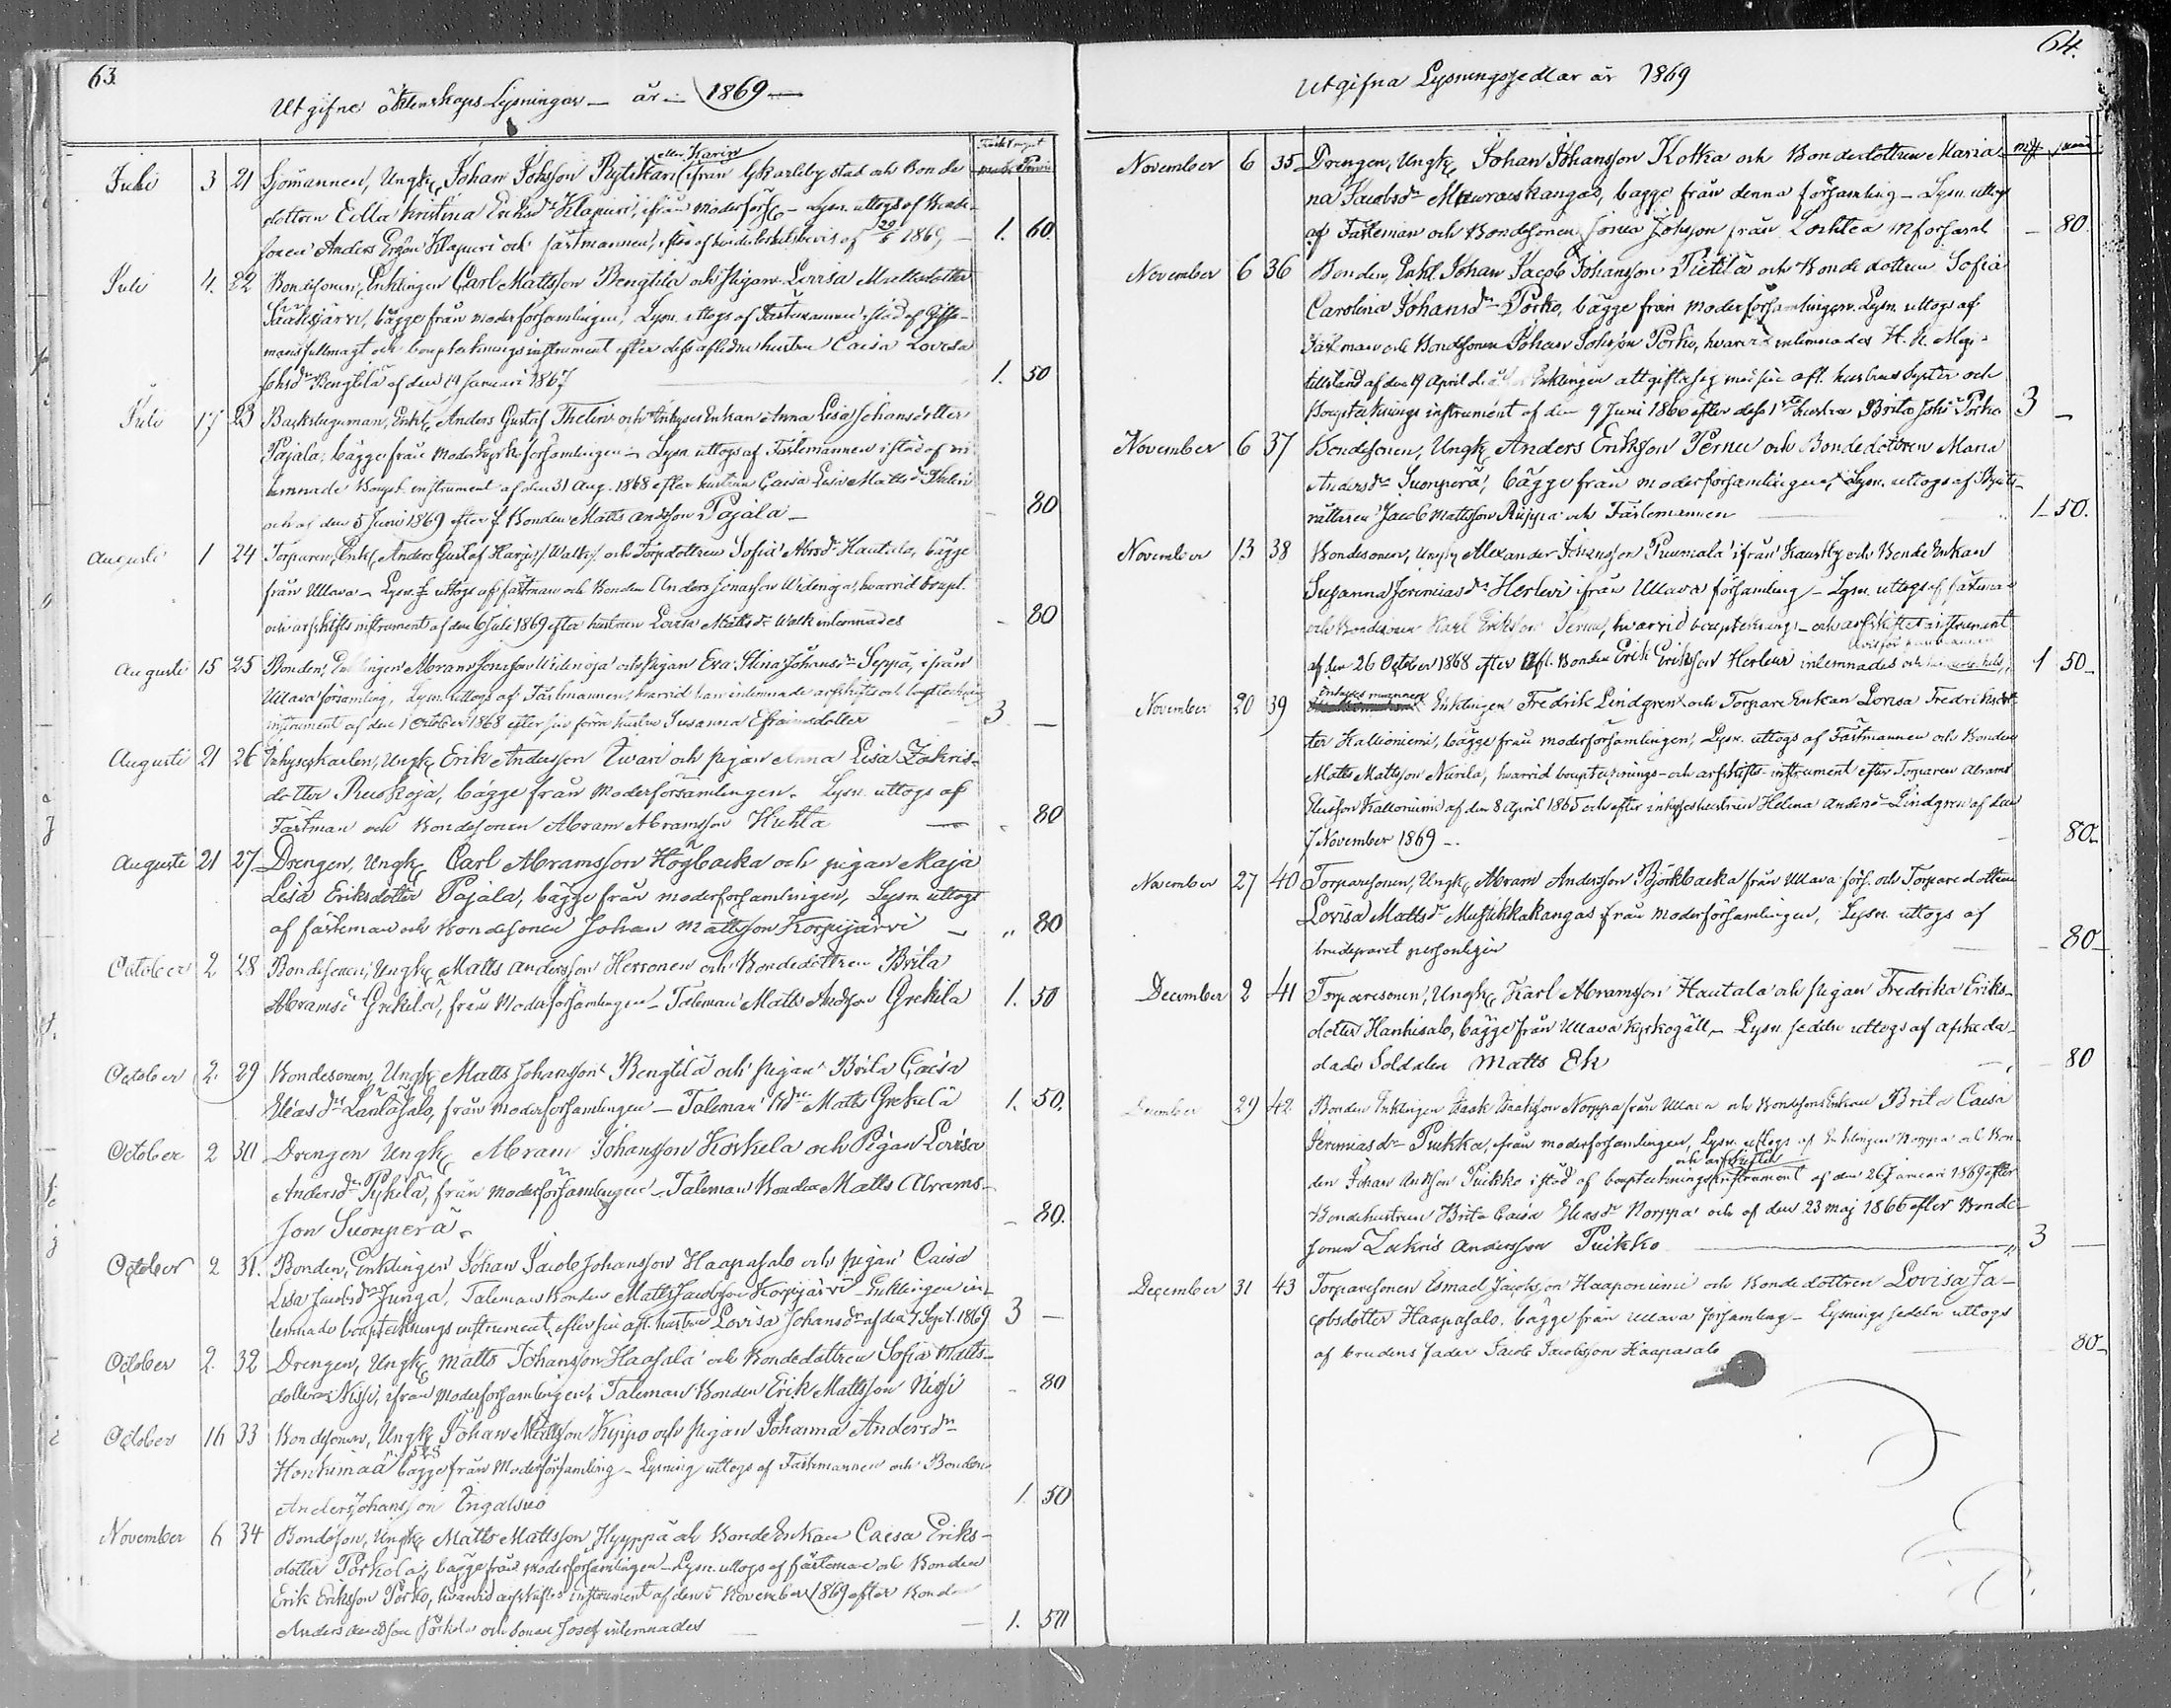 63.
Utgifne äktenskaps Lysningar — år — 1869 —
mark Penni
Juli 3 21 Sjömannen, Ungk, Johan Johsson Rytikari eller Karin ifrån Gkarleby stad och Bonde
dottren Ella Kristina Eriksdr Klapuri, ifrån moderförs — Lysn. uttogs af Bonde-
sonen Anders Ersson Klapuri och fästmannen, efter af 29/6 1869, — 1. 60.
Juli 4. 22 Bondesonen, Enklingen Carl Mattsson Bengtila och pigan Lovisa Mattsdotter
Sääksjärvi, bägge från moderförsamlingen, Lysn. uttogs af Fästemannen istöd af Gifto-
mans fullmagt och bouptecknings instrument efter dess aflidna hustru Caisa Lovisa
Johsdr Bengtilä af den 14 Januari 1867 1. 50
Juli 17 23 Backstuguman, Enkl, Anders Gustof Thelin och Inhyses Enkan Anna Lisa Johansdotter
Pajala, bägge från Moderkyrkoförsamlingen — Lysn. uttogs af Fästemannen istöd af in
lemnade Boupt. instrument af den 31 Aug. 1868 efter hustrun Caisa Lisa Mattsdr Thelin
och af den 5 Juni 1869 efter f. Bonden Matts Andsson Pajala — - 80
Augusti 1 24 Torparen, Enkl, Anders Gustaf Harju /Walk/ och Torpdottren Sofia Abrsdr Hautala, bägge
från Ullava — Lysn. uttogs af fästman och Bonden Anders Jonasson Widenoja, hvarvid boupt.
och arfskifts instrument af den 6 Juli 1869 efter hustrun Lovisa Mattsdr Walk inlemnades - 80
Augusti 15 25 Bonden, Enklingen Abram Jonasson Widenoja och pigan Eva Stina Johansdr Seppä, ifrån
Ullava församling, Lysn. uttogs af Fästmannen, hvarvid han inlemnade arfskifts och bouptecknings
instrument af den 1 October 1868 efter sin förra hustru Susanna Efraimsdotter - 3 —
Augusti 21 26 Inhyseskarlen, Ungk, Erik Andersson Iivari och pigan Anna Lisa Zakris-
dotter Ruokoja, bägge från Moderförsamlingen. Lysn. uttogs af
Fästman och Bondesonen Abram Abramsson Huhta — - 80
Augusti 21 27. Drengen, Ungk, Carl Abramsson Högbacka och pigan Maja
Lisa Eriksdotter Pajala, bägge från moderförsamlingen, Lysn. uttogs
af fästeman och Bondesonen Johan Mattsson Korpijärvi — „ 80
October 2 28 Bondesonen, Ungk, Matts Andersson Herronen och Bondedottren Brita
Abramsdr Grekila, från Moderförsamlingen — Taleman Matts Andsson Grekila 1. 50
October 2. 29 Bondesonen, Ungk, Matts Johansson Bengtilä och pigan Brita Caisa
Eliasdr Länläsalo, från moderförsamlingen — Taleman Matts Grekulä 1. 50.
October 2 30 Drengen Ungk, Abram Johansson Korkela och Pigan Lovisa
Andersdr Pykilä, från moderförsamlingen — Taleman Bonden Matts Abrams-
son Suonperä. - 80.
October 2 31. Bonden, Enklingen Johan Jacob Johansson Haapasalo och pigan Caisa
Lisa Jacobsdr Junga, Taleman Bonden Matts Jacobsson Korpijärvi — Enklingen in-
lemnade bouptecknings instrument efter sin afl. hustru Lovisa Johansdr af den 7 Sept. 1869 3 —
October 2. 32 Drengen, Ungk, Matts Johansson Haasala och Bondedottren Sofia Matts-
dotter Nissi, ifrån moderförsamlingen. Taleman Bonden Erik Mattsson Nissi - 80
October 16 33 Bondesonen, Ungk, Johan Mattsson Kippo och pigan Johanna Andersdr
Honkimaa bägge från Moderförsamling — Lysning uttogs af Fästemannen och Bonden
Anders Johansson Ingalsuo 1. 50
November 6 34 Bondeson, Ungk, Matts Mattsson Hyyppä och Bonde Enkan Caisa Eriks-
dotter Porkola, bägge från moderförsamlingen — Lysn. uttogs af fästeman och Bonden
Erik Eriksson Porko, hvarvid arfskiftes instrument af den 5 November 1869 efter Bonden
Anders Andersson Porkola och sonen Josef inlemnades — 1. 50
64.
Utgifna Lysningssedlar år 1869
mk penni
November 6 35 Drengen, Ungk, Johan Johansson Kotka och Bondedottren Maria-
na Jacobsdr Mauraiskangas, bägge från denna församling — Lysn. uttogs
af Fästeman och Bondesonen Jonas Johsson från Lochtea mförsaml — 80.
November 6 36 Bonden, Enkl. Johan Jacob Johansson Pietilä och Bondedottren Sofia
Carolina Johansdr Porko, bägge från moderförsamlingen. Lysn. uttogs af
Fästman och Bondesonen Johan Johsson Porko, hvarvid inlemnades H. K. Maj:
tillstånd af den 19 April d. å. för Enklingen att gifta sig med sin afl. hustrus syster och
Bouptecknings instrument af den 9 Juni 1860 efter dess 1sta hustru Brita Johsdr Porko 3 —
November 6 37 Bondesonen, Ungk, Anders Eriksson Pernu och Bondedottren Maria
Andersdr Suonperä, bägge från moderförsamlingen, Lysn. uttogs af Byalt-
rättaren Jacob Mattsson Ruppa och Fästemannen 1 50.
November 13 38 Bondesonen, Ungk, Alexander Johansson Puumala ifrån Kaustby och Bonde Enkan
Susanna Jeremiasdr Herlevi ifrån Ullava församling — Lysn. uttogs af fästman
och Bondesonen Karl Eriksson Pernu, hvarvid bouptecknings- och arfskiftes instrument
af den 26 October 1868 efter afl. Bonden Erik Eriksson Herlevi inlemnades och 1 50
November 20 39 Inhyses mannen Enklingen Fredrik Lindgren och Torpare Enkan Lovisa Fredriksdot-
ter Kallioniemi, bägge från moderförsamlingen, Lysn. uttogs af Fästmannen och Bonden
Matts Mattsson Nivila, hvarvid bouptecknings- och arfskifts-instrument efter Torparen Abram
Eliasson Kallioniemi af den 8 April 1865 och efter inhyseshustrun Helena Andersdr Lindgren af den
7 November 1869 — 80
November 27 40 Torparesonen, Ungk, Abram Andersson Björkbacka från Ullava förs. och Torparedottren
Lovisa Mattsdr Mustikkakangas från moderförsamlingen, Lysn. uttogs af
brudeparet personligen — 80
December 2 41 Torparesonen, Ungk, Karl Abramsson Hautala och pigan Fredrika Eriks-
dotter Hanhisalo, bägge från Ullava Kyrkogäll, — Lysn. sedeln uttogs af afskeda-
dade Soldaten Matts Ek — 80
December 29 42 Bonden Enklingen Isaak Isaksson Norppa från Ullava och Bondesons Enkan Brita Caisa
Jeremiasdr Puikko, ifrån moderförsamlingen, Lysn. uttogs af Enklingen Norppa och Bon-
den Johan Andsson Puikko istöd af bouptecknings och arfskiftes instrument af den 26 Januari 1869 efter
Bondehustrun Brita Caisa Eliasdr Norppa och af den 23 maj 1866 efter Bonde-
sonen Zakris Andersson Puikko — 3 —
December 31 43 Torparesonen Ismael Jacobsson Haaponiemi och Bondedottren Lovisa Ja-
cobsdotter Haapasalo, bägge från Ullava församling — Lysnings sedeln uttogs
af brudens fader Jacob Jacobsson Haapasalo — 80